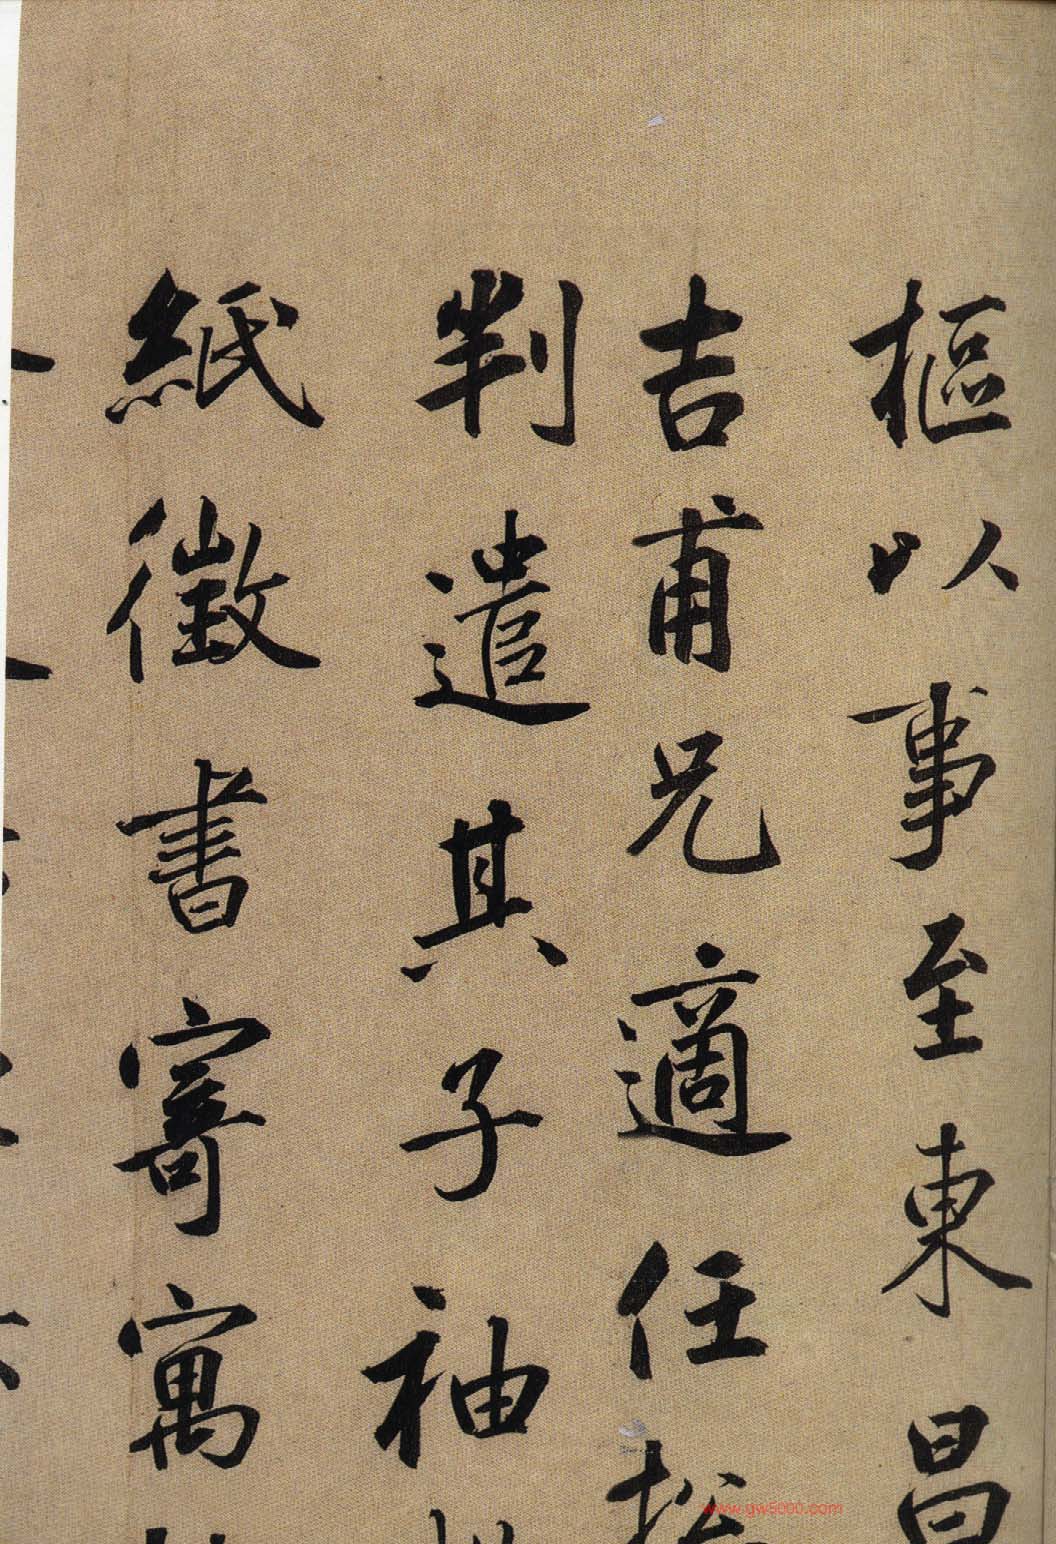 樞以事至東昌
吉甫兄適任
判遣其子袖
紙徵書寄寓
www.gw5000.com